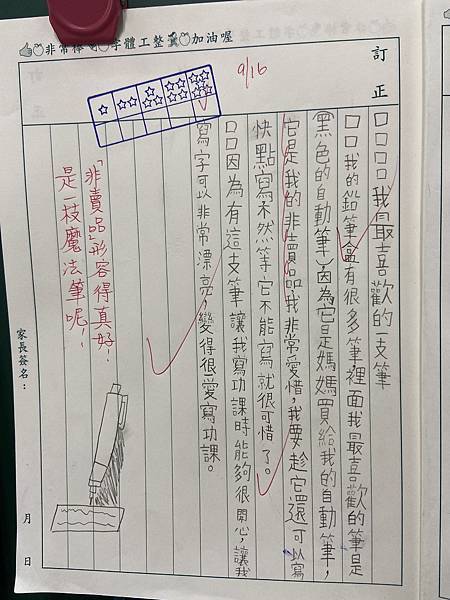 非常棒 字體工整 加油喔
訂正
9/16
口口口口我最喜歡的一支筆
口口我的鉛筆盒有很多筆裡面我最喜歡的筆是
黑色的自動筆,因為它是媽媽買給我的自動筆,
它是我的非賣品我非常愛惜,我要趁它還可以寫
快點寫不然等它不能寫就很可惜了。
口口因為有這支筆讓我寫功課時能夠很開心,讓我
寫字可以非常漂亮,變得很愛寫功課。
「非賣品」形容得真好!
是一枝魔法筆呢!
家長簽名:
月 日